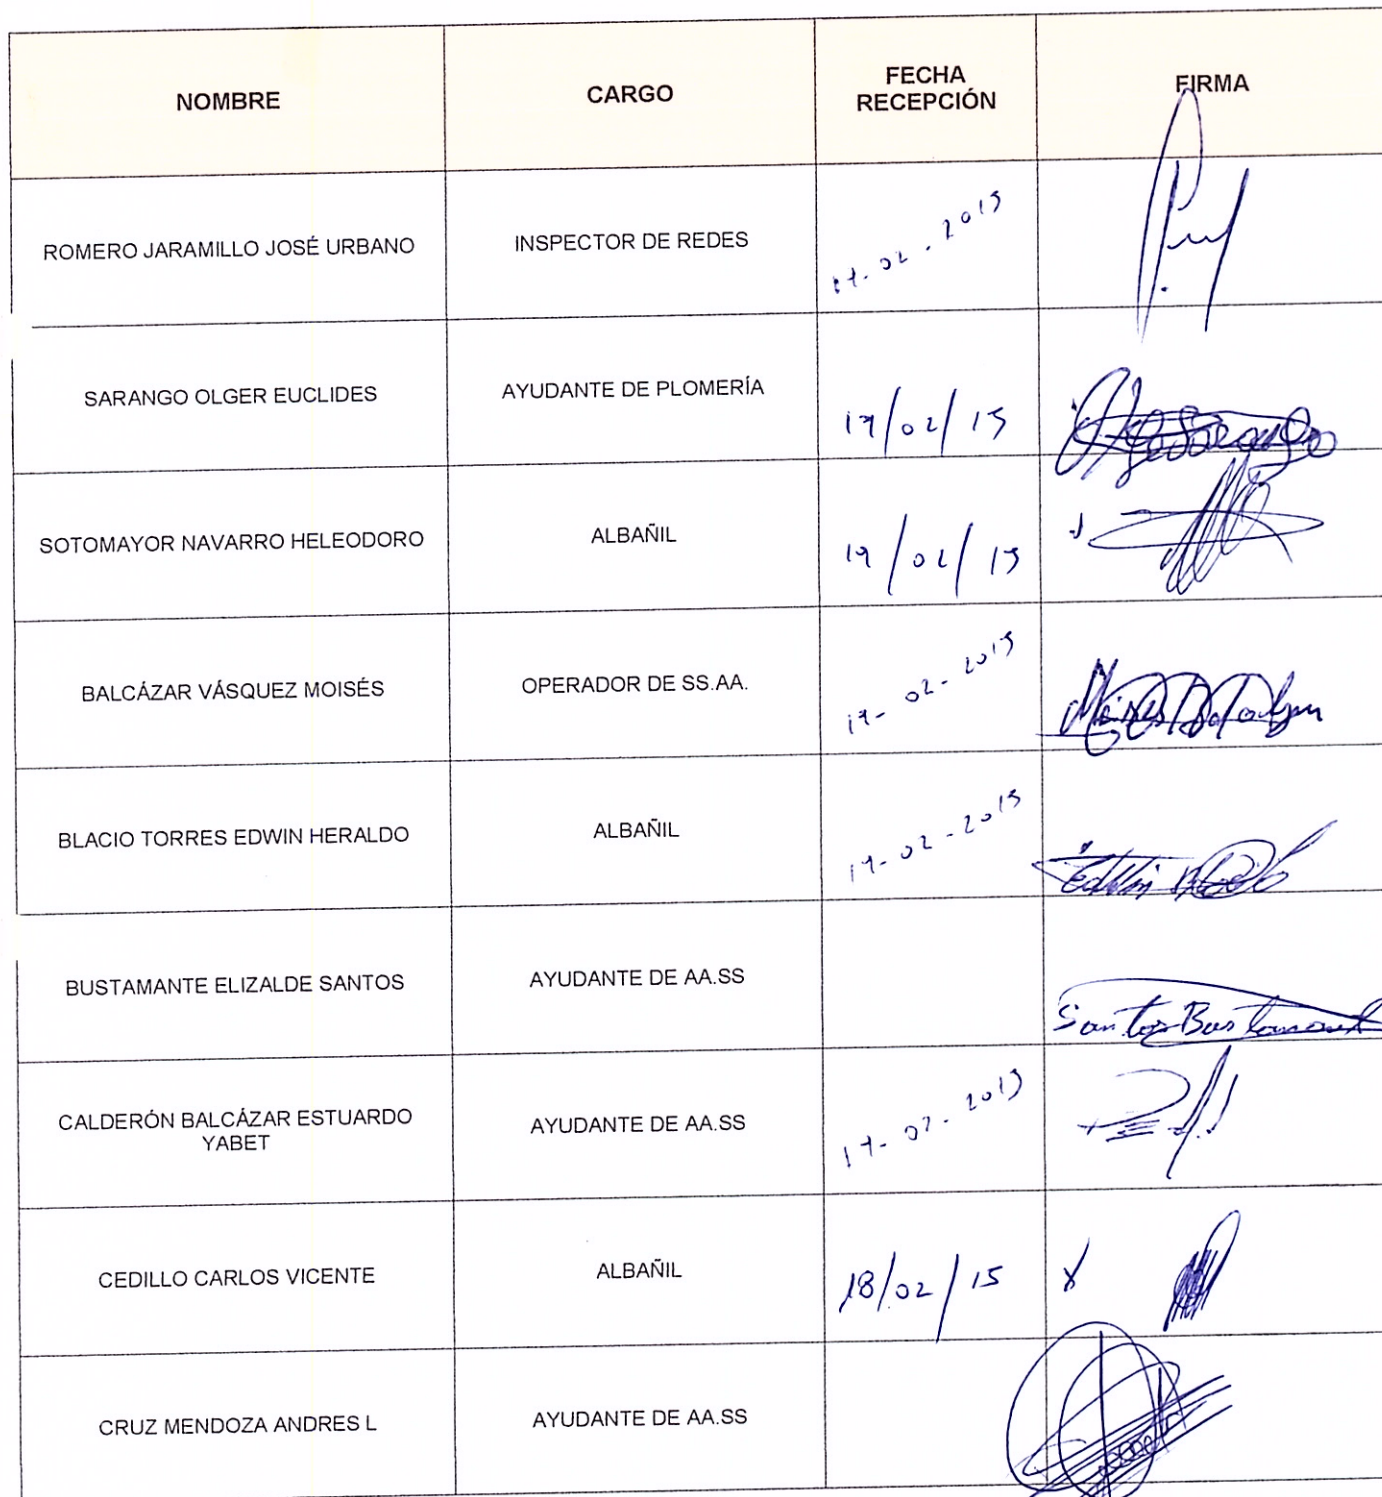 NOMBRE
CARGO
FECHA
RECEPCIÓN
FIRMA
ROMERO JARAMILLO JOSÉ URBANO
INSPECTOR DE REDES
19-02-2015
SARANGO OLGER EUCLIDES
AYUDANTE DE PLOMERÍA
19/02/15
SOTOMAYOR NAVARRO HELEODORO
ALBAÑIL
19/02/15
BALCÁZAR VÁSQUEZ MOISÉS
OPERADOR DE SS.AA.
19-02-2015
BLACIO TORRES EDWIN HERALDO
ALBAÑIL
19-02-2015
BUSTAMANTE ELIZALDE SANTOS
AYUDANTE DE AA.SS
Santos Bustamant
CALDERÓN BALCÁZAR ESTUARDO
YABET
AYUDANTE DE AA.SS
19-02-2015
CEDILLO CARLOS VICENTE
ALBAÑIL
18/02/15
X
CRUZ MENDOZA ANDRES L
AYUDANTE DE AA.SS